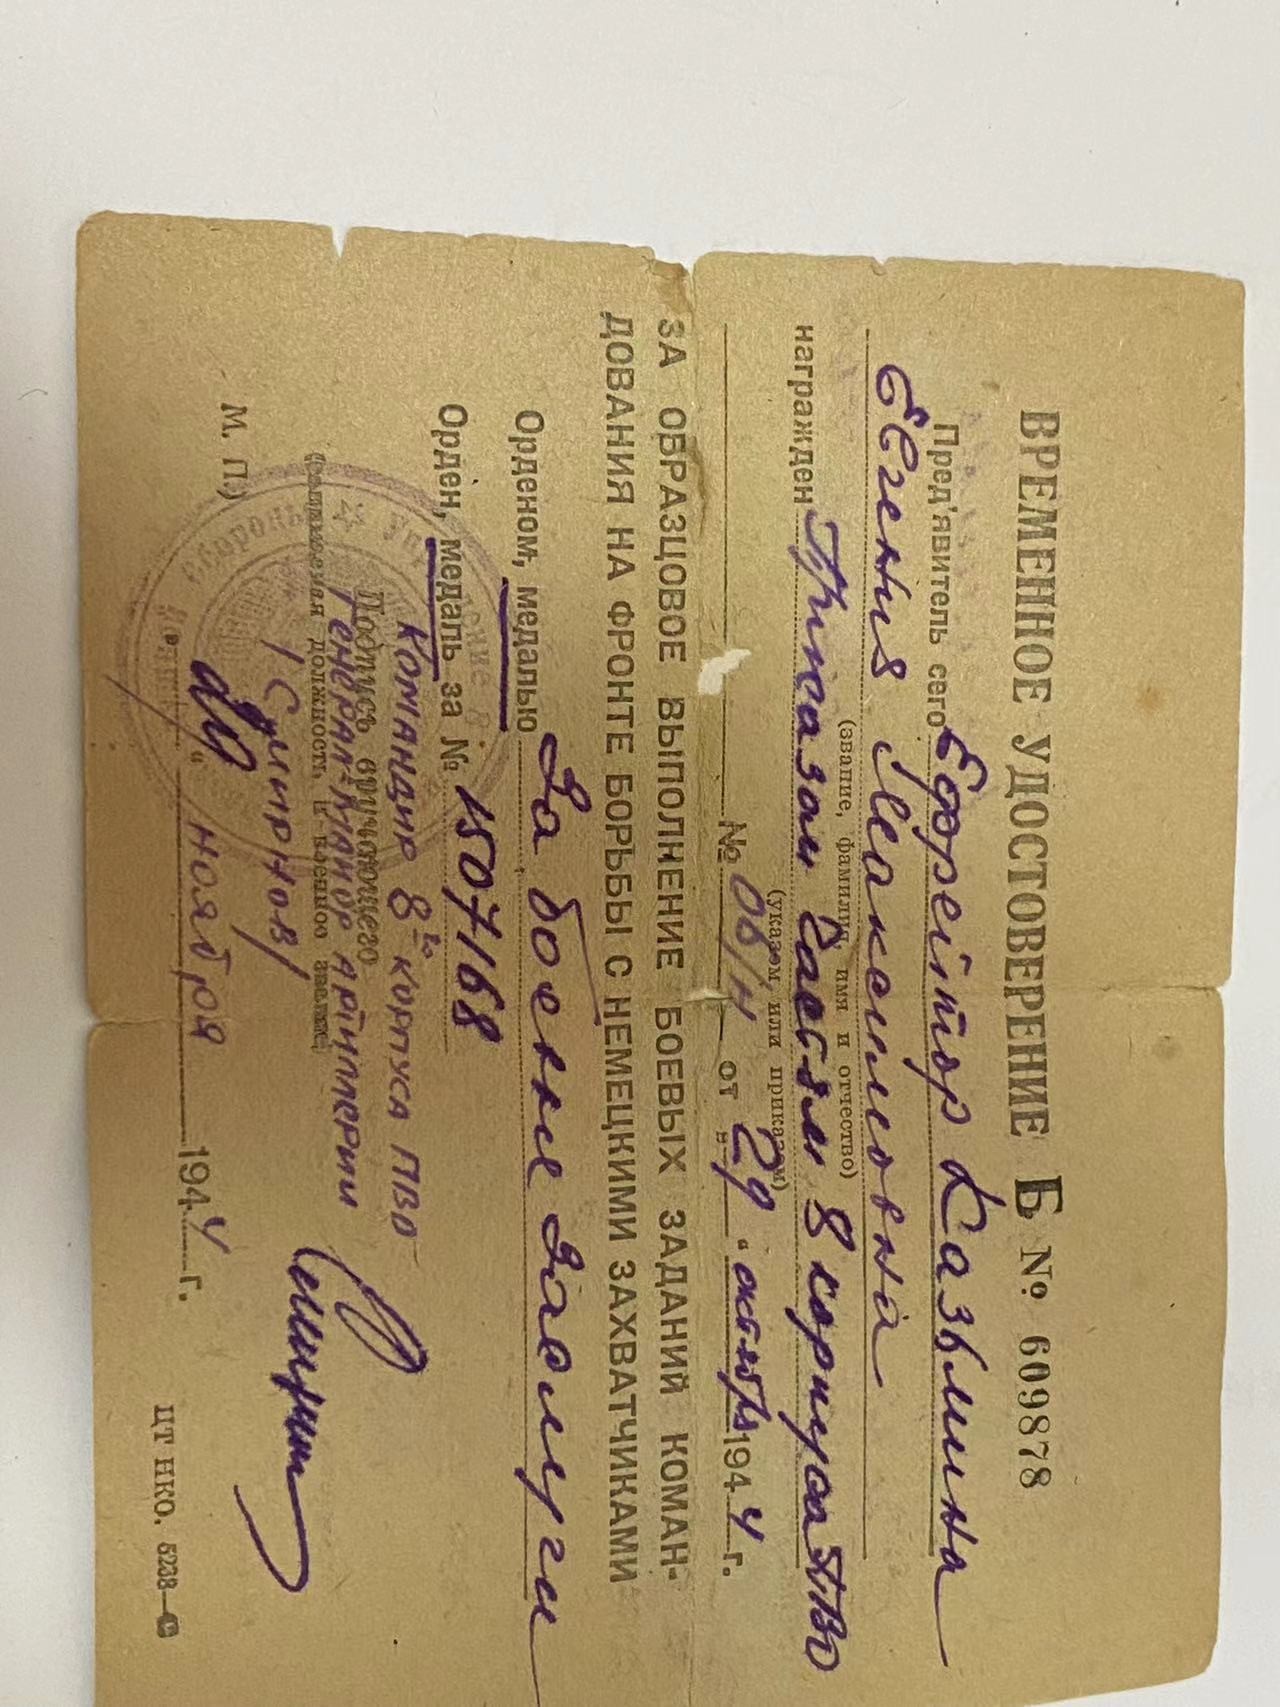 ВРЕМЕННОЕ УДОСТОВЕРЕНИЕ Б № 609878
Пред'явитель сего Ефрейтор Казьмина
(звание, фамилия, имя и отчество)
Евгения Максимовна
награжден Приказом Частям 8 корпуса ПВО
(указом или приказом)
№ 06/н от „29“ октября 1944 г.
ЗА ОБРАЗЦОВОЕ ВЫПОЛНЕНИЕ БОЕВЫХ ЗАДАНИЙ КОМАН-
ДОВАНИЯ НА ФРОНТЕ БОРЬБЫ С НЕМЕЦКИМИ ЗАХВАТЧИКАМИ
Орденом, медалью За боевые заслуги
Орден, медаль за № 1507168
КОМАНДИР 8го КОРПУСА ПВО
Подпись вручающего
ГЕНЕРАЛ-МАЙОР АРТИЛЛЕРИИ
(занимаемая должность и военное звание)
/Смирнов/
М. П.
“ ноября 1944 г.
ЦТ НКО. 5238—